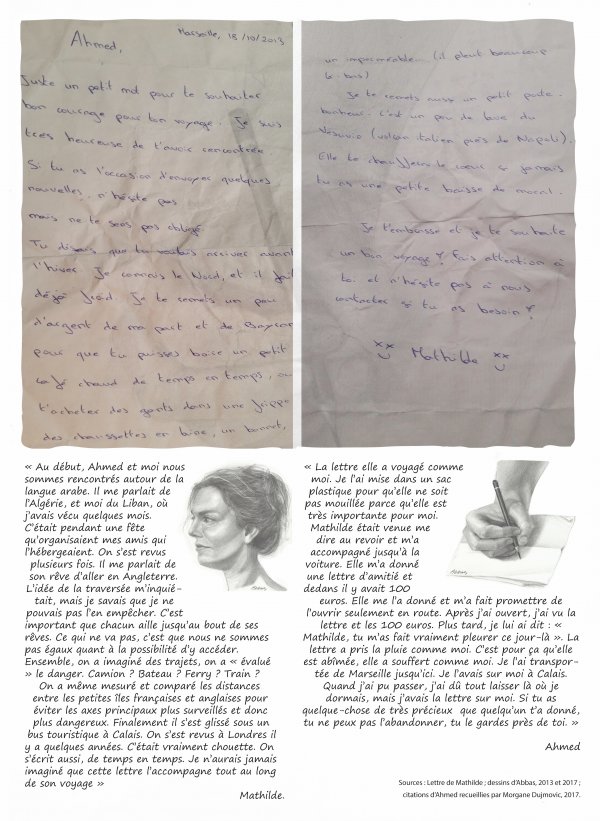 Marseille, 18/10/2013
Ahmed,
Juste un petit mot pour te souhaiter
bon courage pour ton voyage. Je suis
très heureuse de t'avoir rencontrée
Si tu as l'occasion d'envoyer quelques
nouvelles, n'hésite pas
mais ne te sens pas obligé.
Tu disais que tu voulais arriver avant
l'hiver. Je connais le Nord, et il fait
déjà froid. Je te remets un peu
d'argent de ma part et de
pour que tu puisses boire un petit
café chaud de temps en temps, ou
t'acheter des gants dans une fripe
des chaussettes en laine, un bonnet,
un imperméable... (il pleut beaucoup
là-bas)
Je te remets aussi un petit porte-
bonheur. C'est un peu de lave du
Vésuve (volcan italien près de Napoli).
Elle te chauffera le cœur si jamais
tu as une petite baisse de moral.
Je t'embrasse et je te souhaite
un bon voyage! Fais attention à
toi et n'hésite pas à nous
contacter si tu as besoin!
xx Mathilde xx
« Au début, Ahmed et moi nous
sommes rencontrés autour de la
langue arabe. Il me parlait de
l'Algérie, et moi du Liban, où
j'avais vécu quelques mois.
C'était pendant une fête
qu'organisaient mes amis qui
l'hébergeaient. On s'est revus
plusieurs fois. Il me parlait de
son rêve d'aller en Angleterre.
L'idée de la traversée m'inquié-
tait, mais je savais que je ne
pouvais pas l'en empêcher. C'est
important que chacun aille jusqu'au bout de ses
rêves. Ce qui ne va pas, c'est que nous ne sommes
pas égaux quant à la possibilité d'y accéder.
Ensemble, on a imaginé des trajets, on a « évalué
» le danger. Camion ? Bateau ? Ferry ? Train ?
On a même mesuré et comparé les distances
entre les petites îles françaises et anglaises pour
éviter les axes principaux plus surveillés et donc
plus dangereux. Finalement il s'est glissé sous un
bus touristique à Calais. On s'est revus à Londres il
y a quelques années. C'était vraiment chouette. On
s'écrit aussi, de temps en temps. Je n'aurais jamais
imaginé que cette lettre l'accompagne tout au long
de son voyage »
Mathilde.
« La lettre elle a voyagé comme
moi. Je l'ai mise dans un sac
plastique pour qu'elle ne soit
pas mouillée parce qu'elle est
très importante pour moi.
Mathilde était venue me
dire au revoir et m'a
accompagné jusqu'à la
voiture. Elle m'a donné
une lettre d'amitié et
dedans il y avait 100
euros. Elle me l'a donné et m'a fait promettre de
l'ouvrir seulement en route. Après j'ai ouvert, j'ai vu la
lettre et les 100 euros. Plus tard, je lui ai dit : «
Mathilde, tu m'as fait vraiment pleurer ce jour-là ». La
lettre a pris la pluie comme moi. C'est pour ça qu'elle
est abîmée, elle a souffert comme moi. Je l'ai transpor-
tée de Marseille jusqu'ici. Je l'avais sur moi à Calais.
Quand j'ai pu passer, j'ai dû tout laisser là où je
dormais, mais j'avais la lettre sur moi. Si tu as
quelque-chose de très précieux que quelqu'un t'a donné,
tu ne peux pas l'abandonner, tu le gardes près de toi. »
Ahmed
Sources : Lettre de Mathilde ; dessins d'Abbas, 2013 et 2017 ;
citations d'Ahmed recueillies par Morgane Dujmovic, 2017.